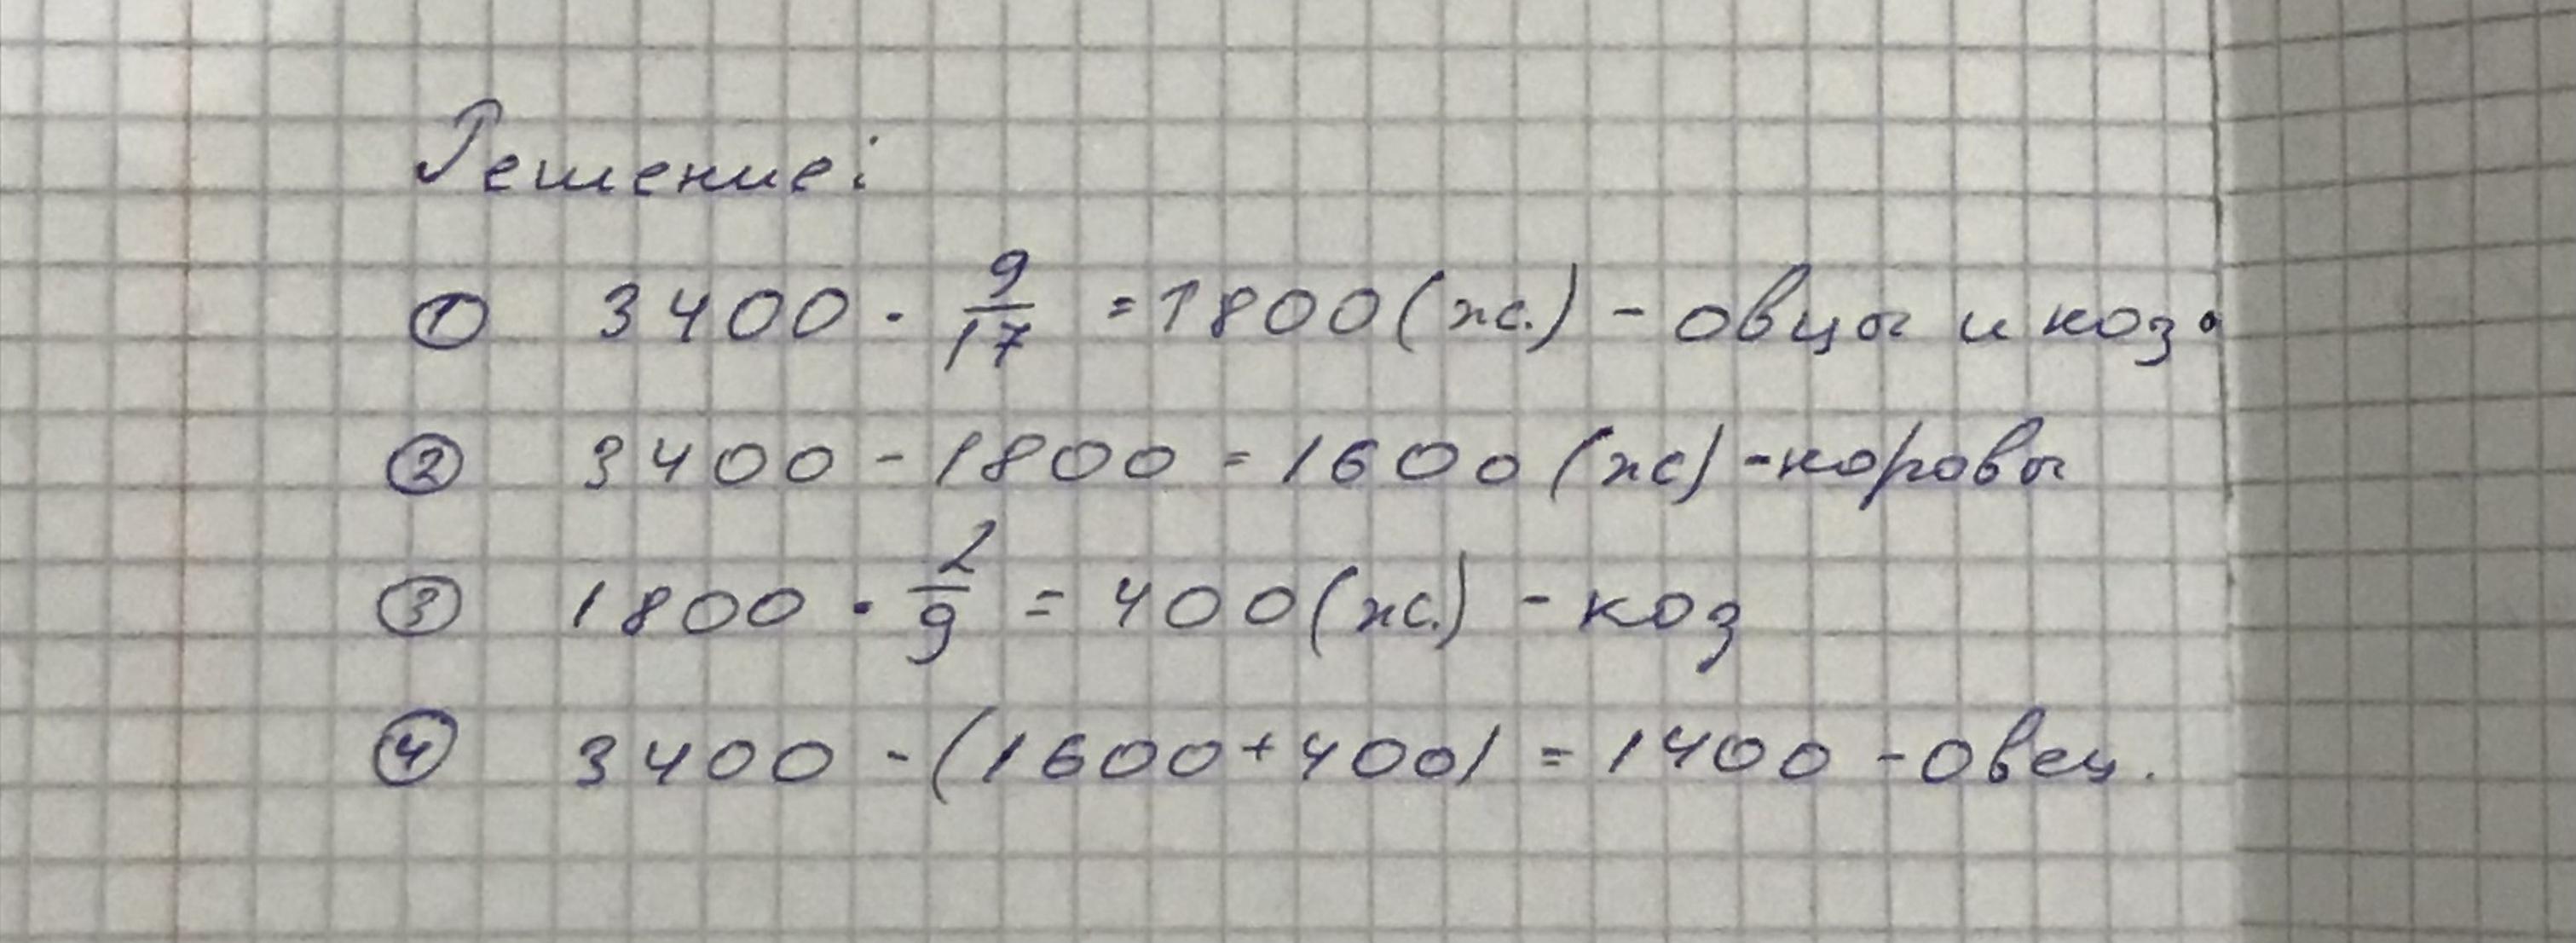 Решение:
① 3400 · 9/17 = 1800 (ж.) - овцы и коз.
② 3400 - 1800 = 1600 (ж) - коровы
③ 1800 · 2/9 = 400 (ж.) - коз
④ 3400 - (1600 + 400) = 1400 - овец.